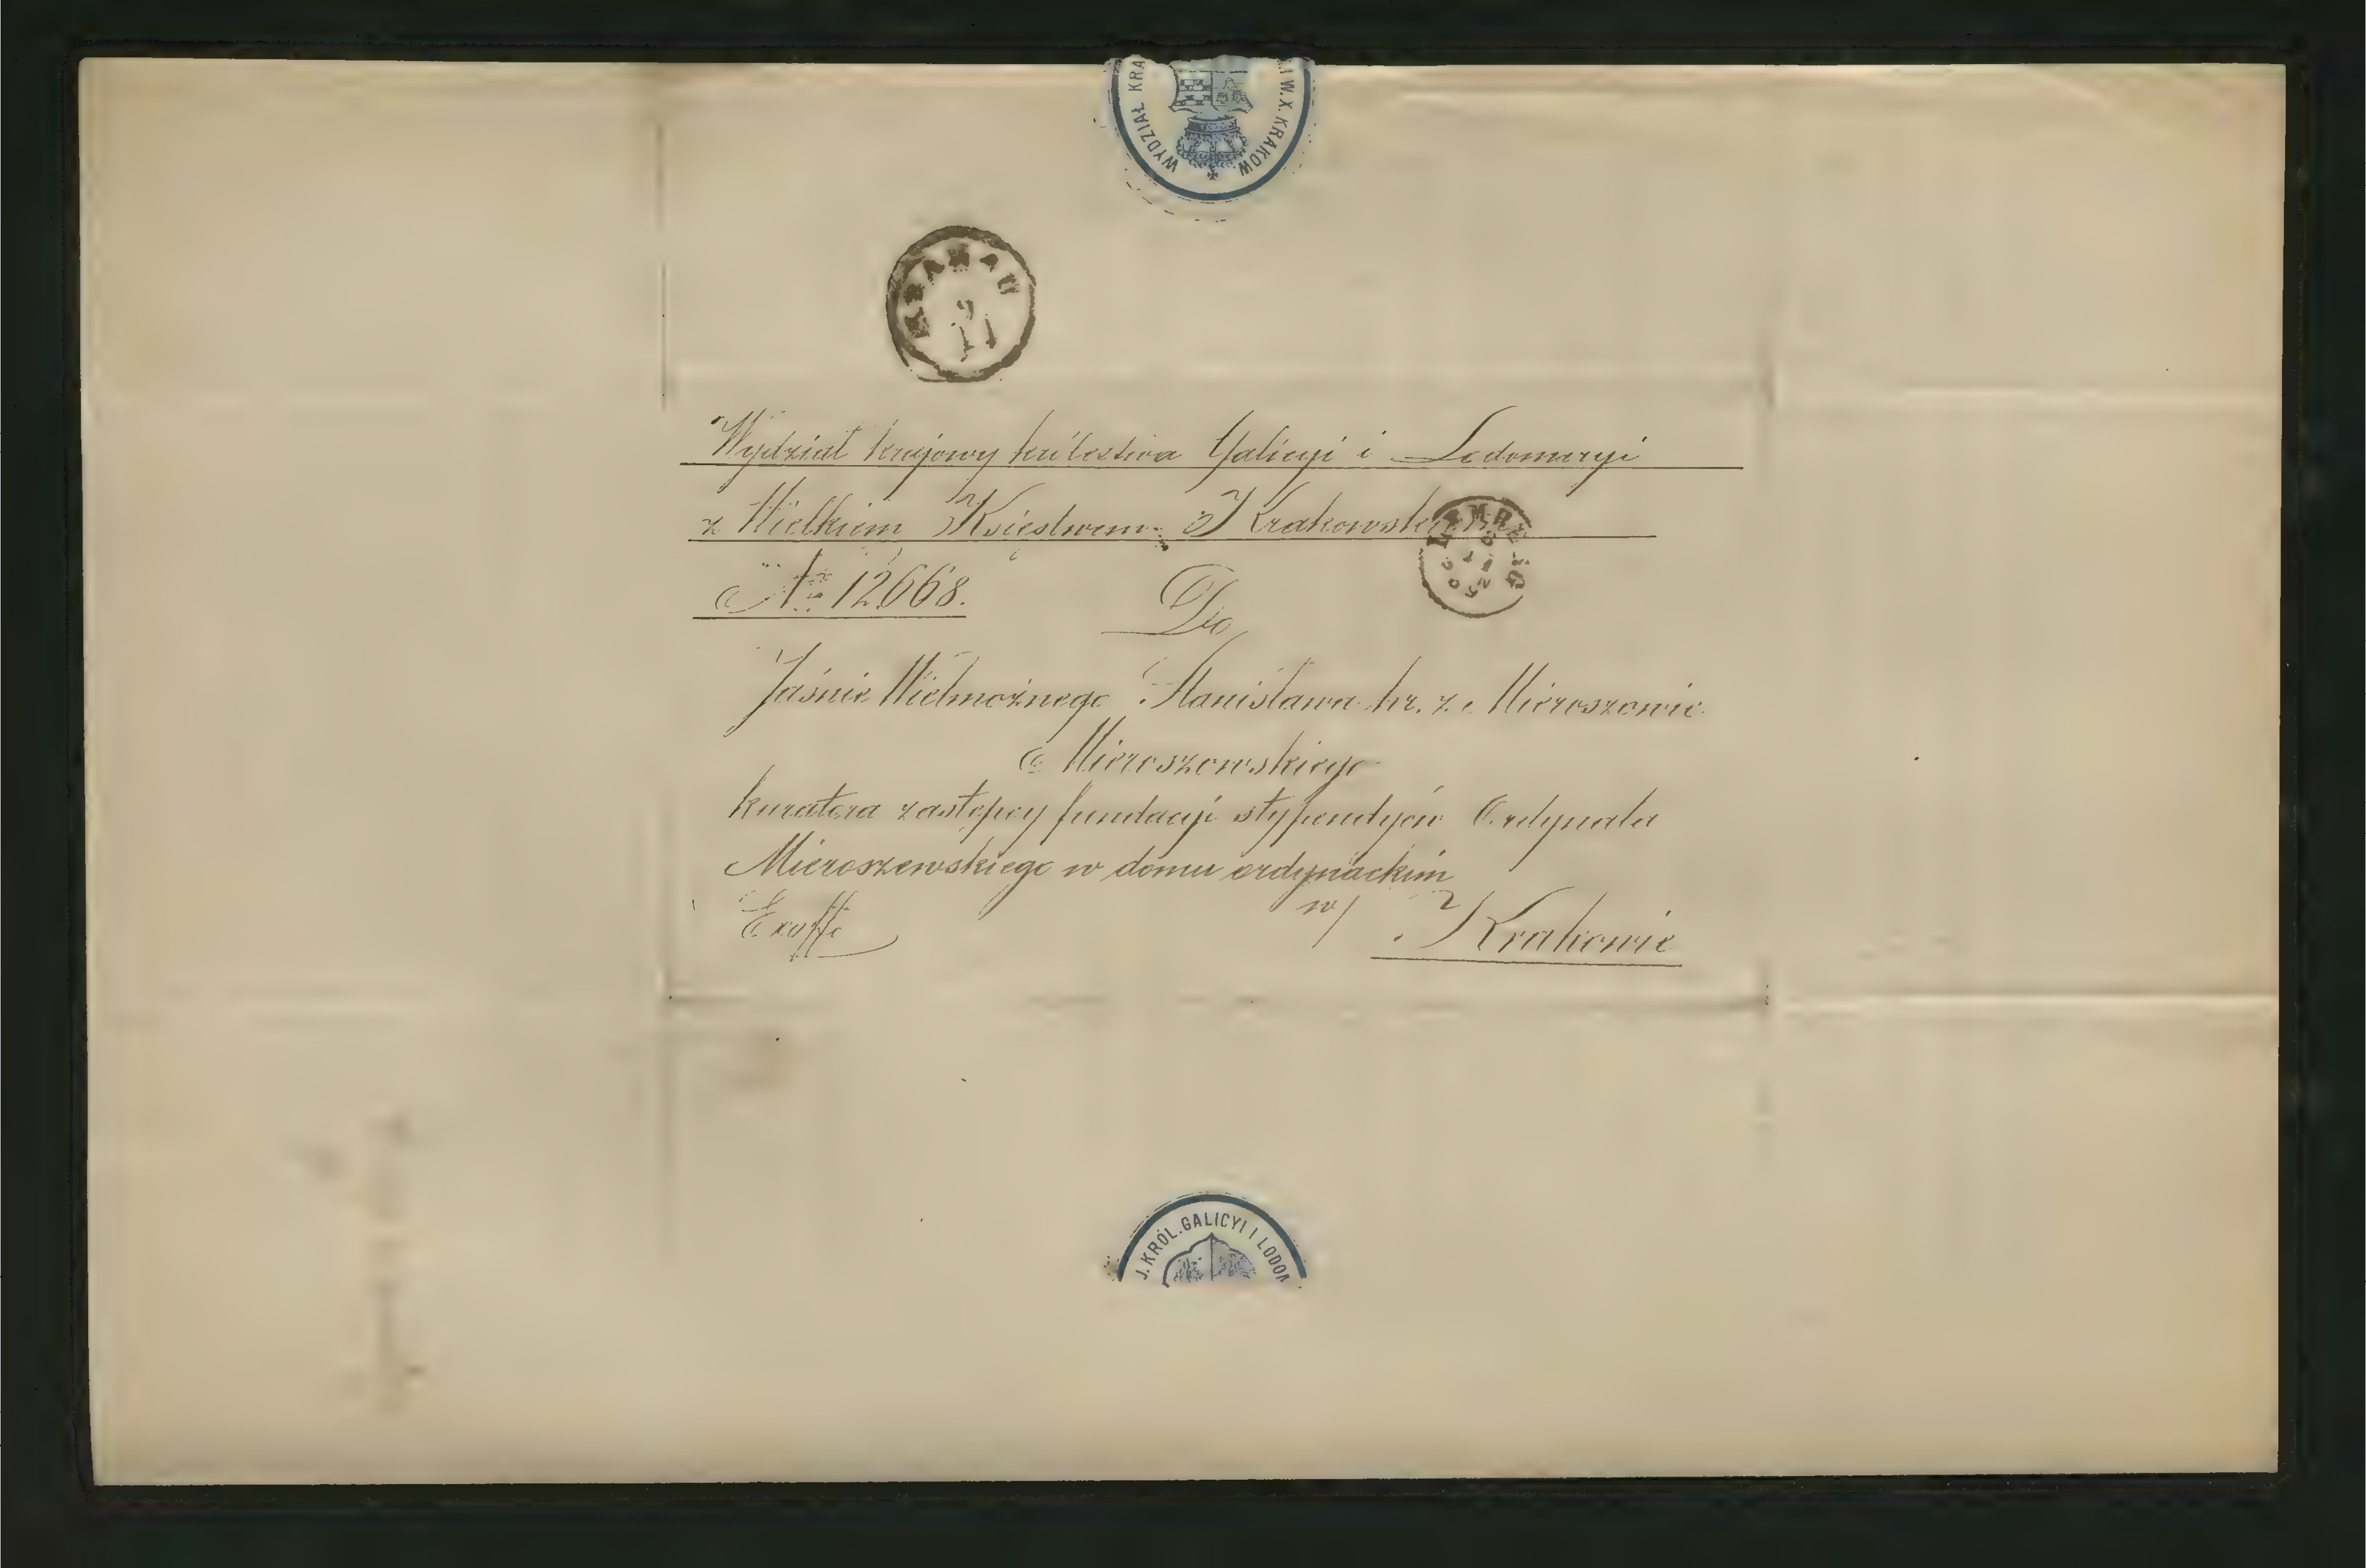 WYDZIAŁ KRA I W.X.KRAKOW
KRAKAU
9
11
Wydział krajowy królestwa Galicyi i Lodomeryi
z Wielkiem Księstwem Krakowskiem
LEMBERG
№ 12668.
Do
Jaśnie Wielmożnego Stanisława hr. z Mieroszowic
Mieroszowskiego
kuratora zastępcy fundacyi stypendyów Ordynata
Mieroszewskiego w domu ordynackim
Exoffo w/ Krakowie
J. KRÓL. GALICYI I LODOM